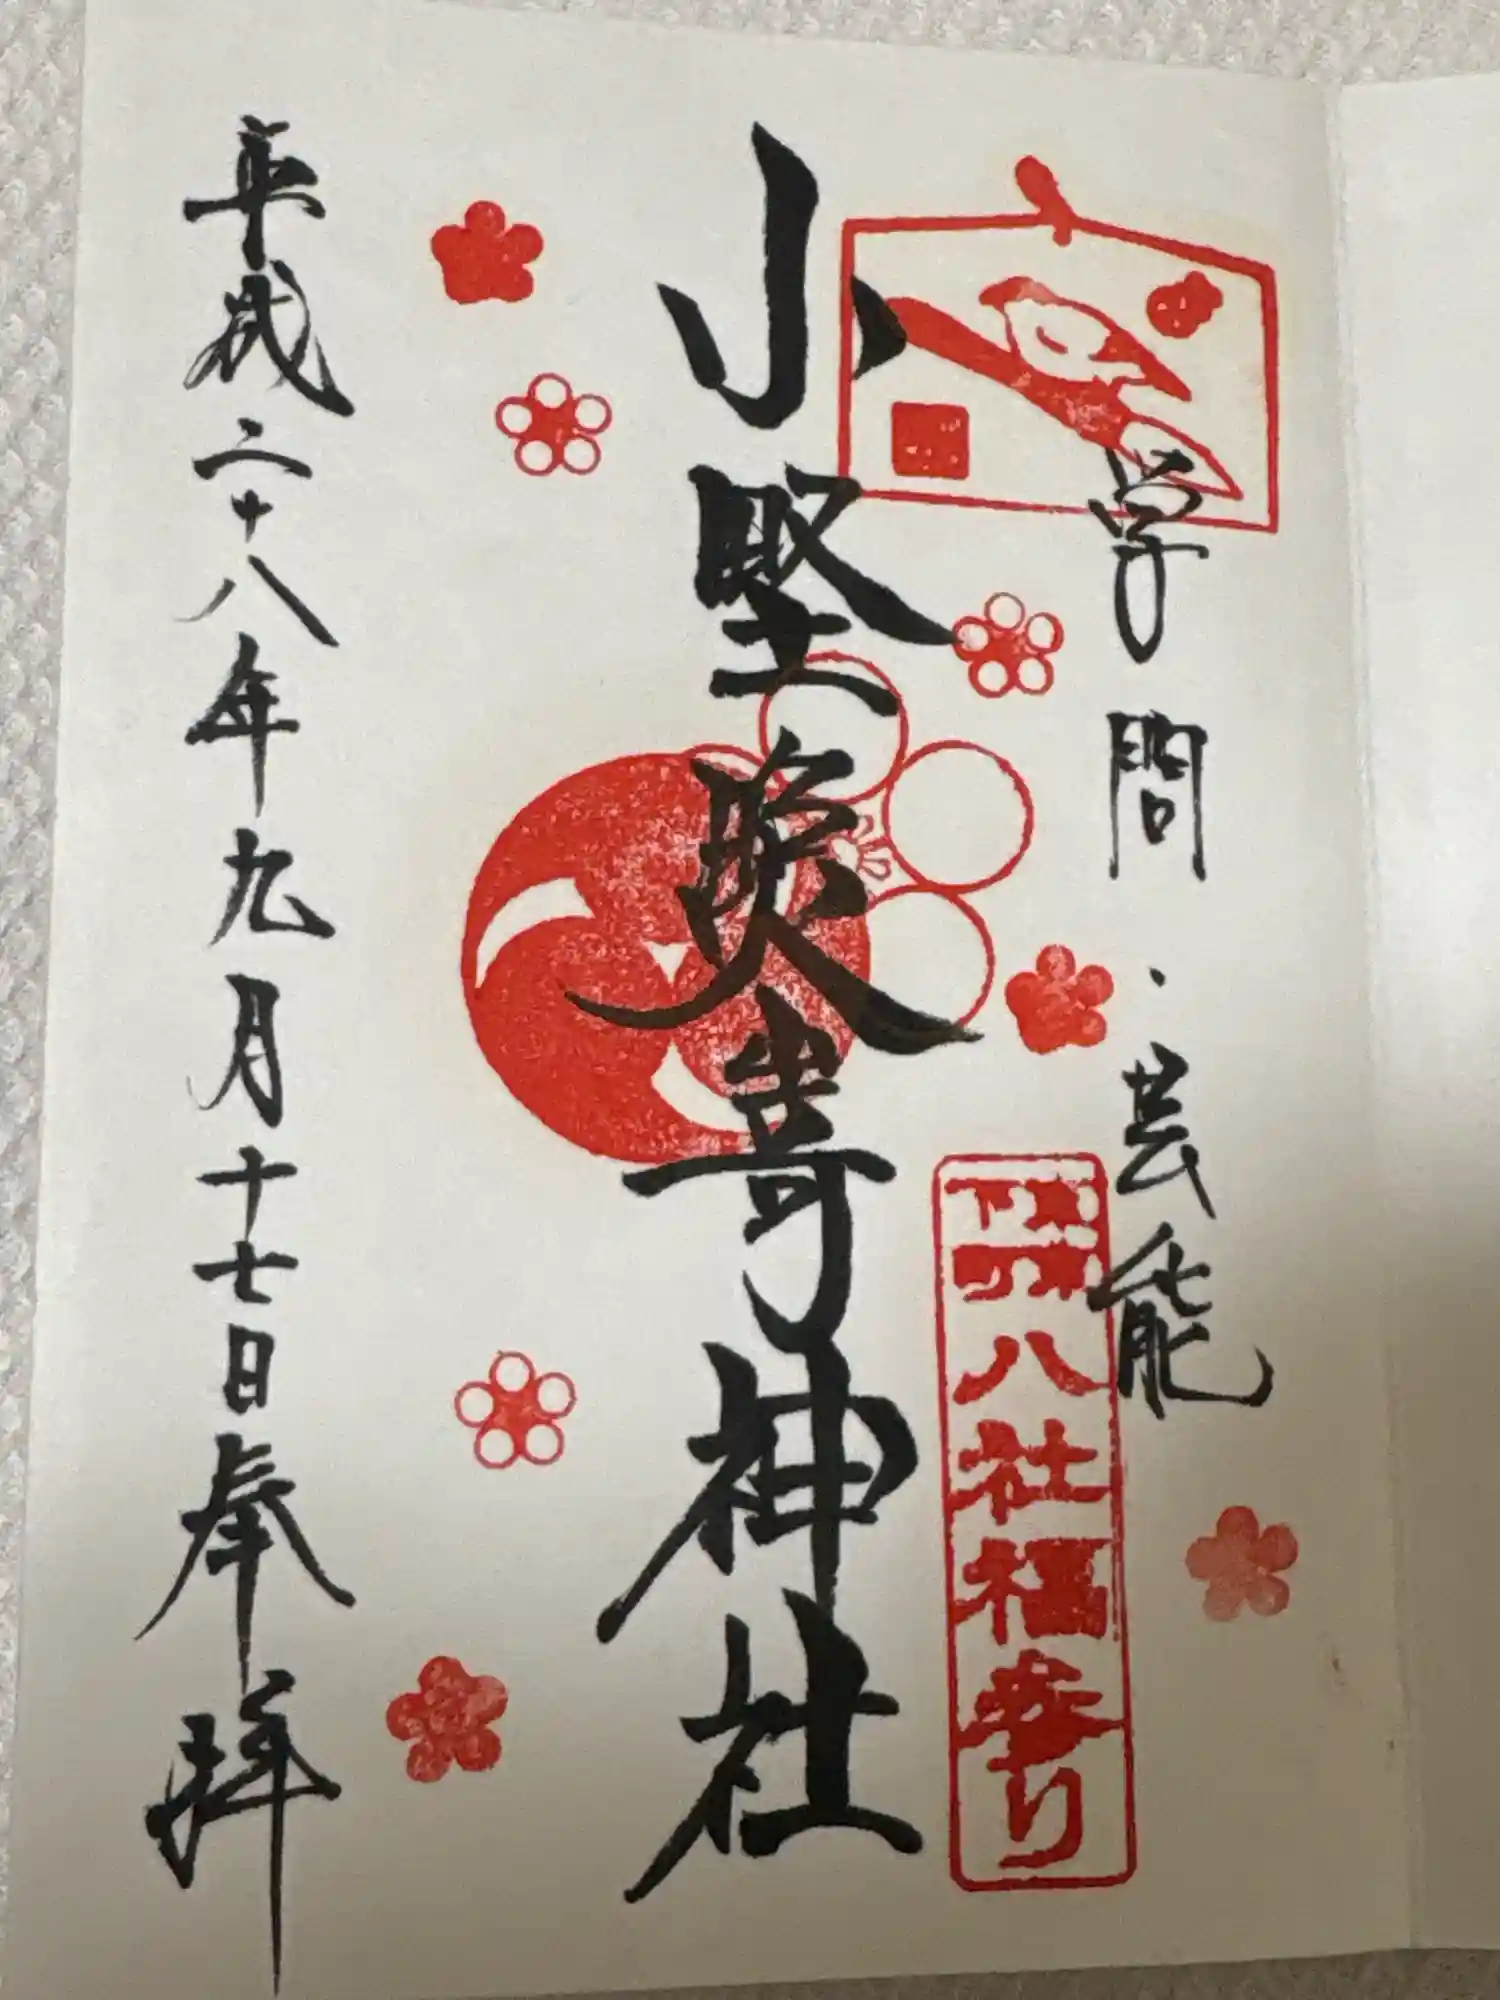 学問・芸能
下町八社福参り
小野照崎神社
平成二十八年九月十七日奉拝